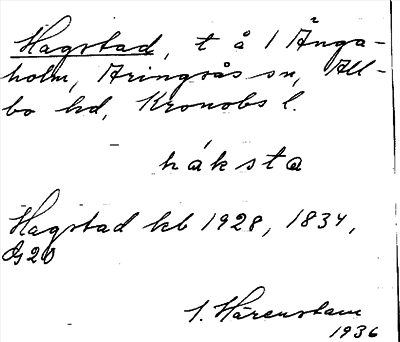 Hagstad, t å 1 Ånga-
holm, Aringsås sn, All-
bo hd, Kronobs l.
háksta
Hagstad kb 1928, 1834,
G20
Härenstam
1936